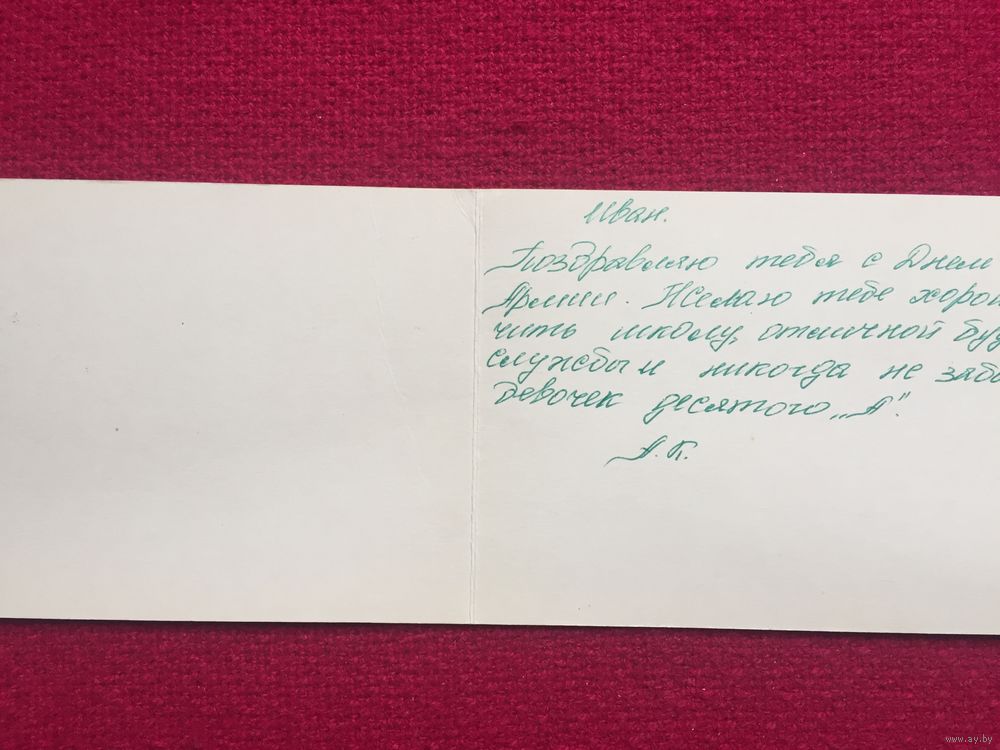 Иван.
Поздравляю тебя с Днем
Армии. Желаю тебе хоро
чить школу, отличной буд
службы и никогда не забы
девочек десятого „А".
А. К.
www.ay.by